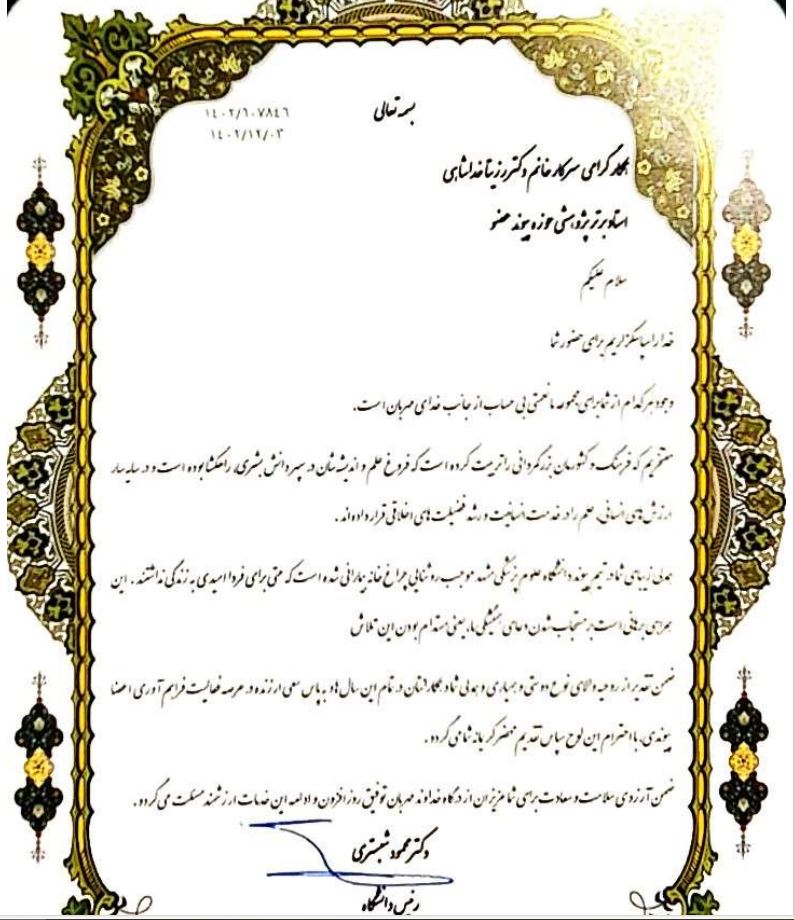 بسمه تعالی
۱٤۰۲/٦۰۷۸٤٦
۱٤۰۲/۱۲/۰۳
همکار گرامی سرکار خانم دکتر رزیتا خدابشاهی
استاد برتر پژوهشی حوزه پیوند عضو
سلام علیکم
خدا را سپاسگزاریم برای حضور شما
وجود هر کدام از شما برای مجموعه ما نعمتی بی حساب از جانب خدای مهربان است.
مفتخریم که فرهنگ و کشورمان بزرگمردانی را تربیت کرده است که فروغ علم و اندیشه شان در سپهر دانش بشری، راهگشا بوده است و در سایه سار
ارزش های انسانی، علم را در خدمت انسانیت و رشد فضیلت های اخلاقی قرار داده اند.
همدلی زیبای شما در تیم پیوند دانشگاه علوم پزشکی مشهد موجب روشنایی چراغ خانه بیمارانی شده است که حتی برای فردا امیدی به زندگی نداشتند. این
همراهی برهانی است بر مستجاب شدن دعای همیشگی ما، یعنی مستدام بودن این تلاش
ضمن تقدیر از روحیه والای نوع دوستی و همیاری و همدلی شما و همکارانتان در تمام این سال ها و به پاس سعی ارزنده در عرصه فعالیت فراهم آوری اعضا
پیوندی، با احترام این لوح سپاس تقدیم محضر کریمانه شما می گردد.
ضمن آرزوی سلامت و سعادت برای شما عزیزان از درگاه خداوند مهربان توفیق روز افزون و ادامه این خدمات ارزشمند مسئلت می گردد.
دکتر محمود شبستری
رئیس دانشگاه